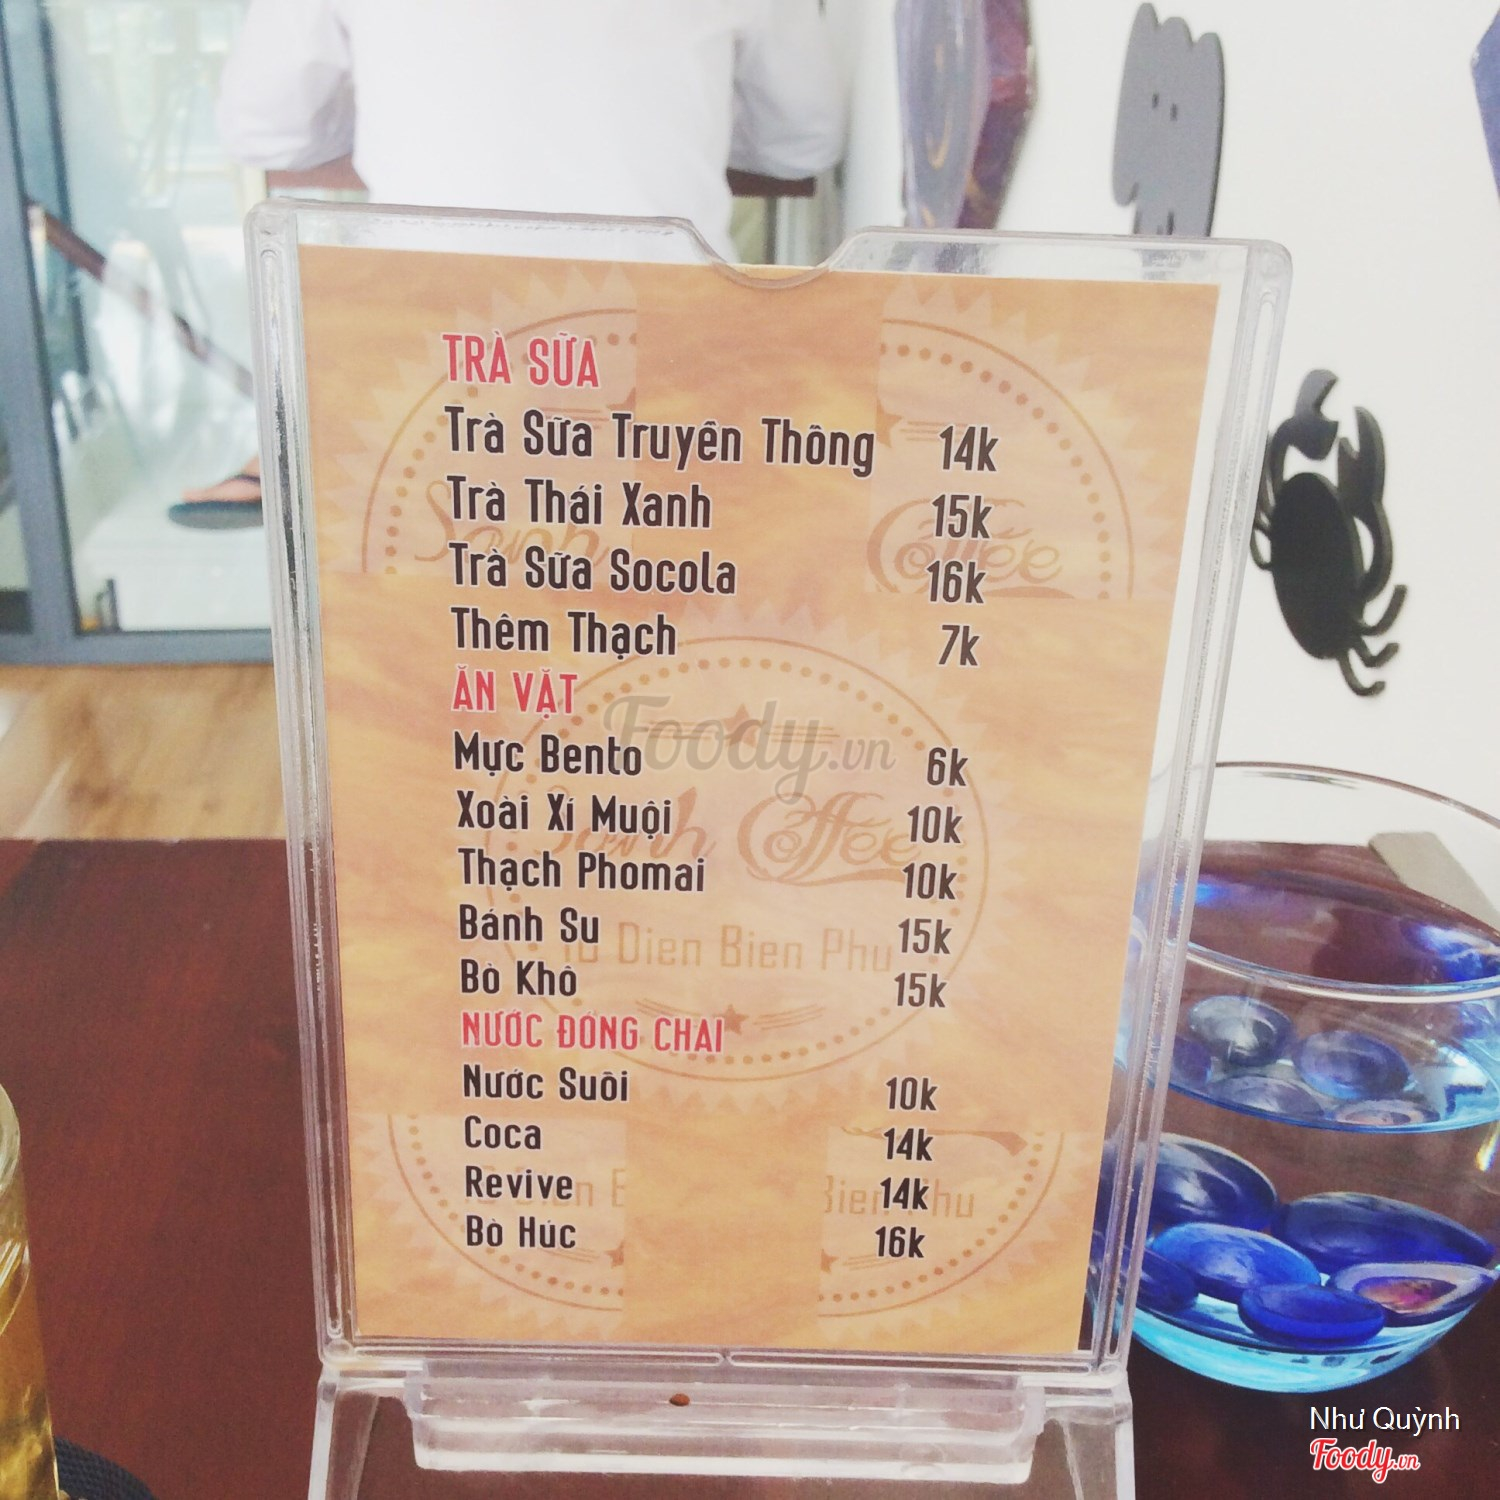 TRÀ SỮA
Trà Sữa Truyền Thống 14k
Trà Thái Xanh 15k
Trà Sữa Socola 16k
Thêm Thạch 7k
ĂN VẶT
Mực Bento 6k
Xoài Xí Muội 10k
Thạch Phomai 10k
Bánh Su 15k
Bò Khô 15k
NƯỚC ĐÓNG CHAI
Nước Suối 10k
Coca 14k
Revive 14k
Bò Húc 16k
Foody.vn
Sanh Coffee
10 Dien Bien Phu
Như Quỳnh
Foody.vn